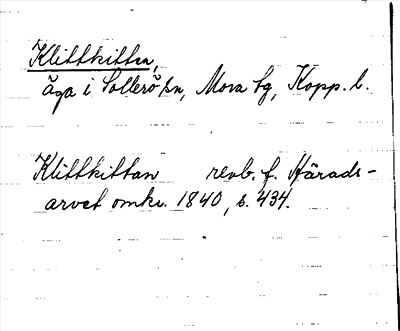 Klittkitten,
äga i Sollerö sn, Mora tg, Kopp. l.
Klittkittan revb. f. Härads-
arvet omkr. 1840, s. 434.